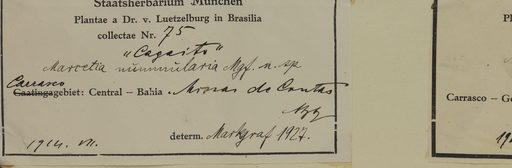 Staatsherbarium München
Plantae a Dr. v. Luetzelburg in Brasilia
collectae Nr. 75
"Cagaito"
Marcetia nummularia Mgf. n. sp.
Carrasco
Caatingagebiet: Central – Bahia. de Contas
1914. VII.
determ. Markgraf 1927.
Pl
Carrasco – Ge
19